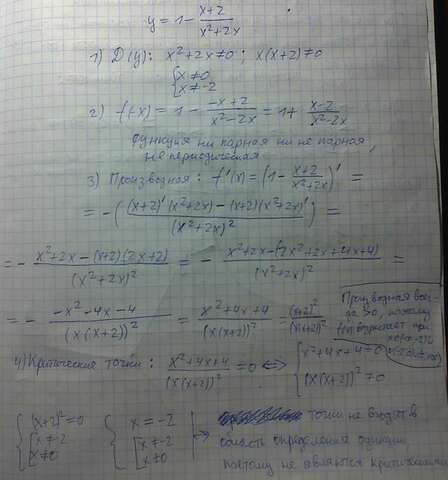 y = 1 - (x+2)/(x²+2x)
1) D(y): x²+2x≠0; x(x+2)≠0
{x≠0
{x≠-2
2) f(-x) = 1 - (-x+2)/(x²-2x) = 1 + (x-2)/(x²-2x)
Функция ни парная ни не парная,
не периодическая
3) Производная: f'(x) = (1 - (x+2)/(x²+2x))' =
= -( ((x+2)'(x²+2x) - (x+2)(x²+2x)')/(x²+2x)² ) =
= - (x²+2x-(x+2)(2x+2))/(x²+2x)² = - (x²+2x-(2x²+2x+4x+4))/(x²+2x)² =
= - (-x²-4x-4)/(x·(x+2))² = (x²+4x+4)/(x(x+2))² = (x+2)²/(x(x+2))²
Производная
>0, поэтому
f(x) возрастает при
4) Критические точки: (x²+4x+4)/(x(x+2))² = 0 <=> {x²+4x+4=0
{(x(x+2))²≠0
{(x+2)²=0
[x≠-2
[x≠0
{x=-2
[x≠-2
[x≠0
точки не входят в
область определения функции
поэтому не являются критическими